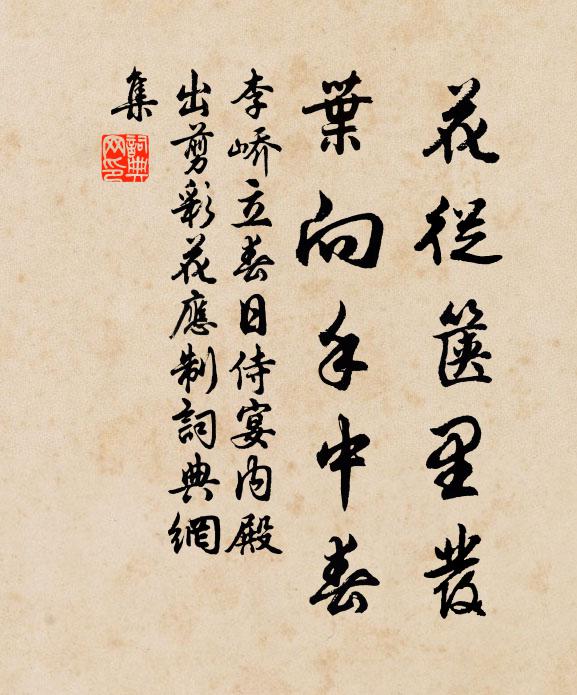 花從篋里發
葉向手中春
李嶠立春日侍宴內殿
出剪彩花應制詞典網
集
詞典
网印